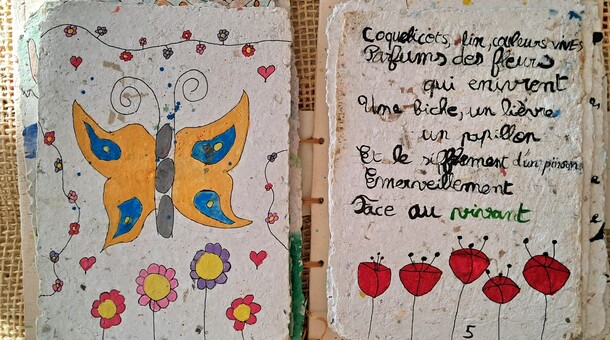 Coquelicots, lin, couleurs vives
Parfums des fleurs
qui enivrent
Une biche, un lièvre
un papillon
Et le sifflement d'un pinson
Emerveillement
Face au vivant
5